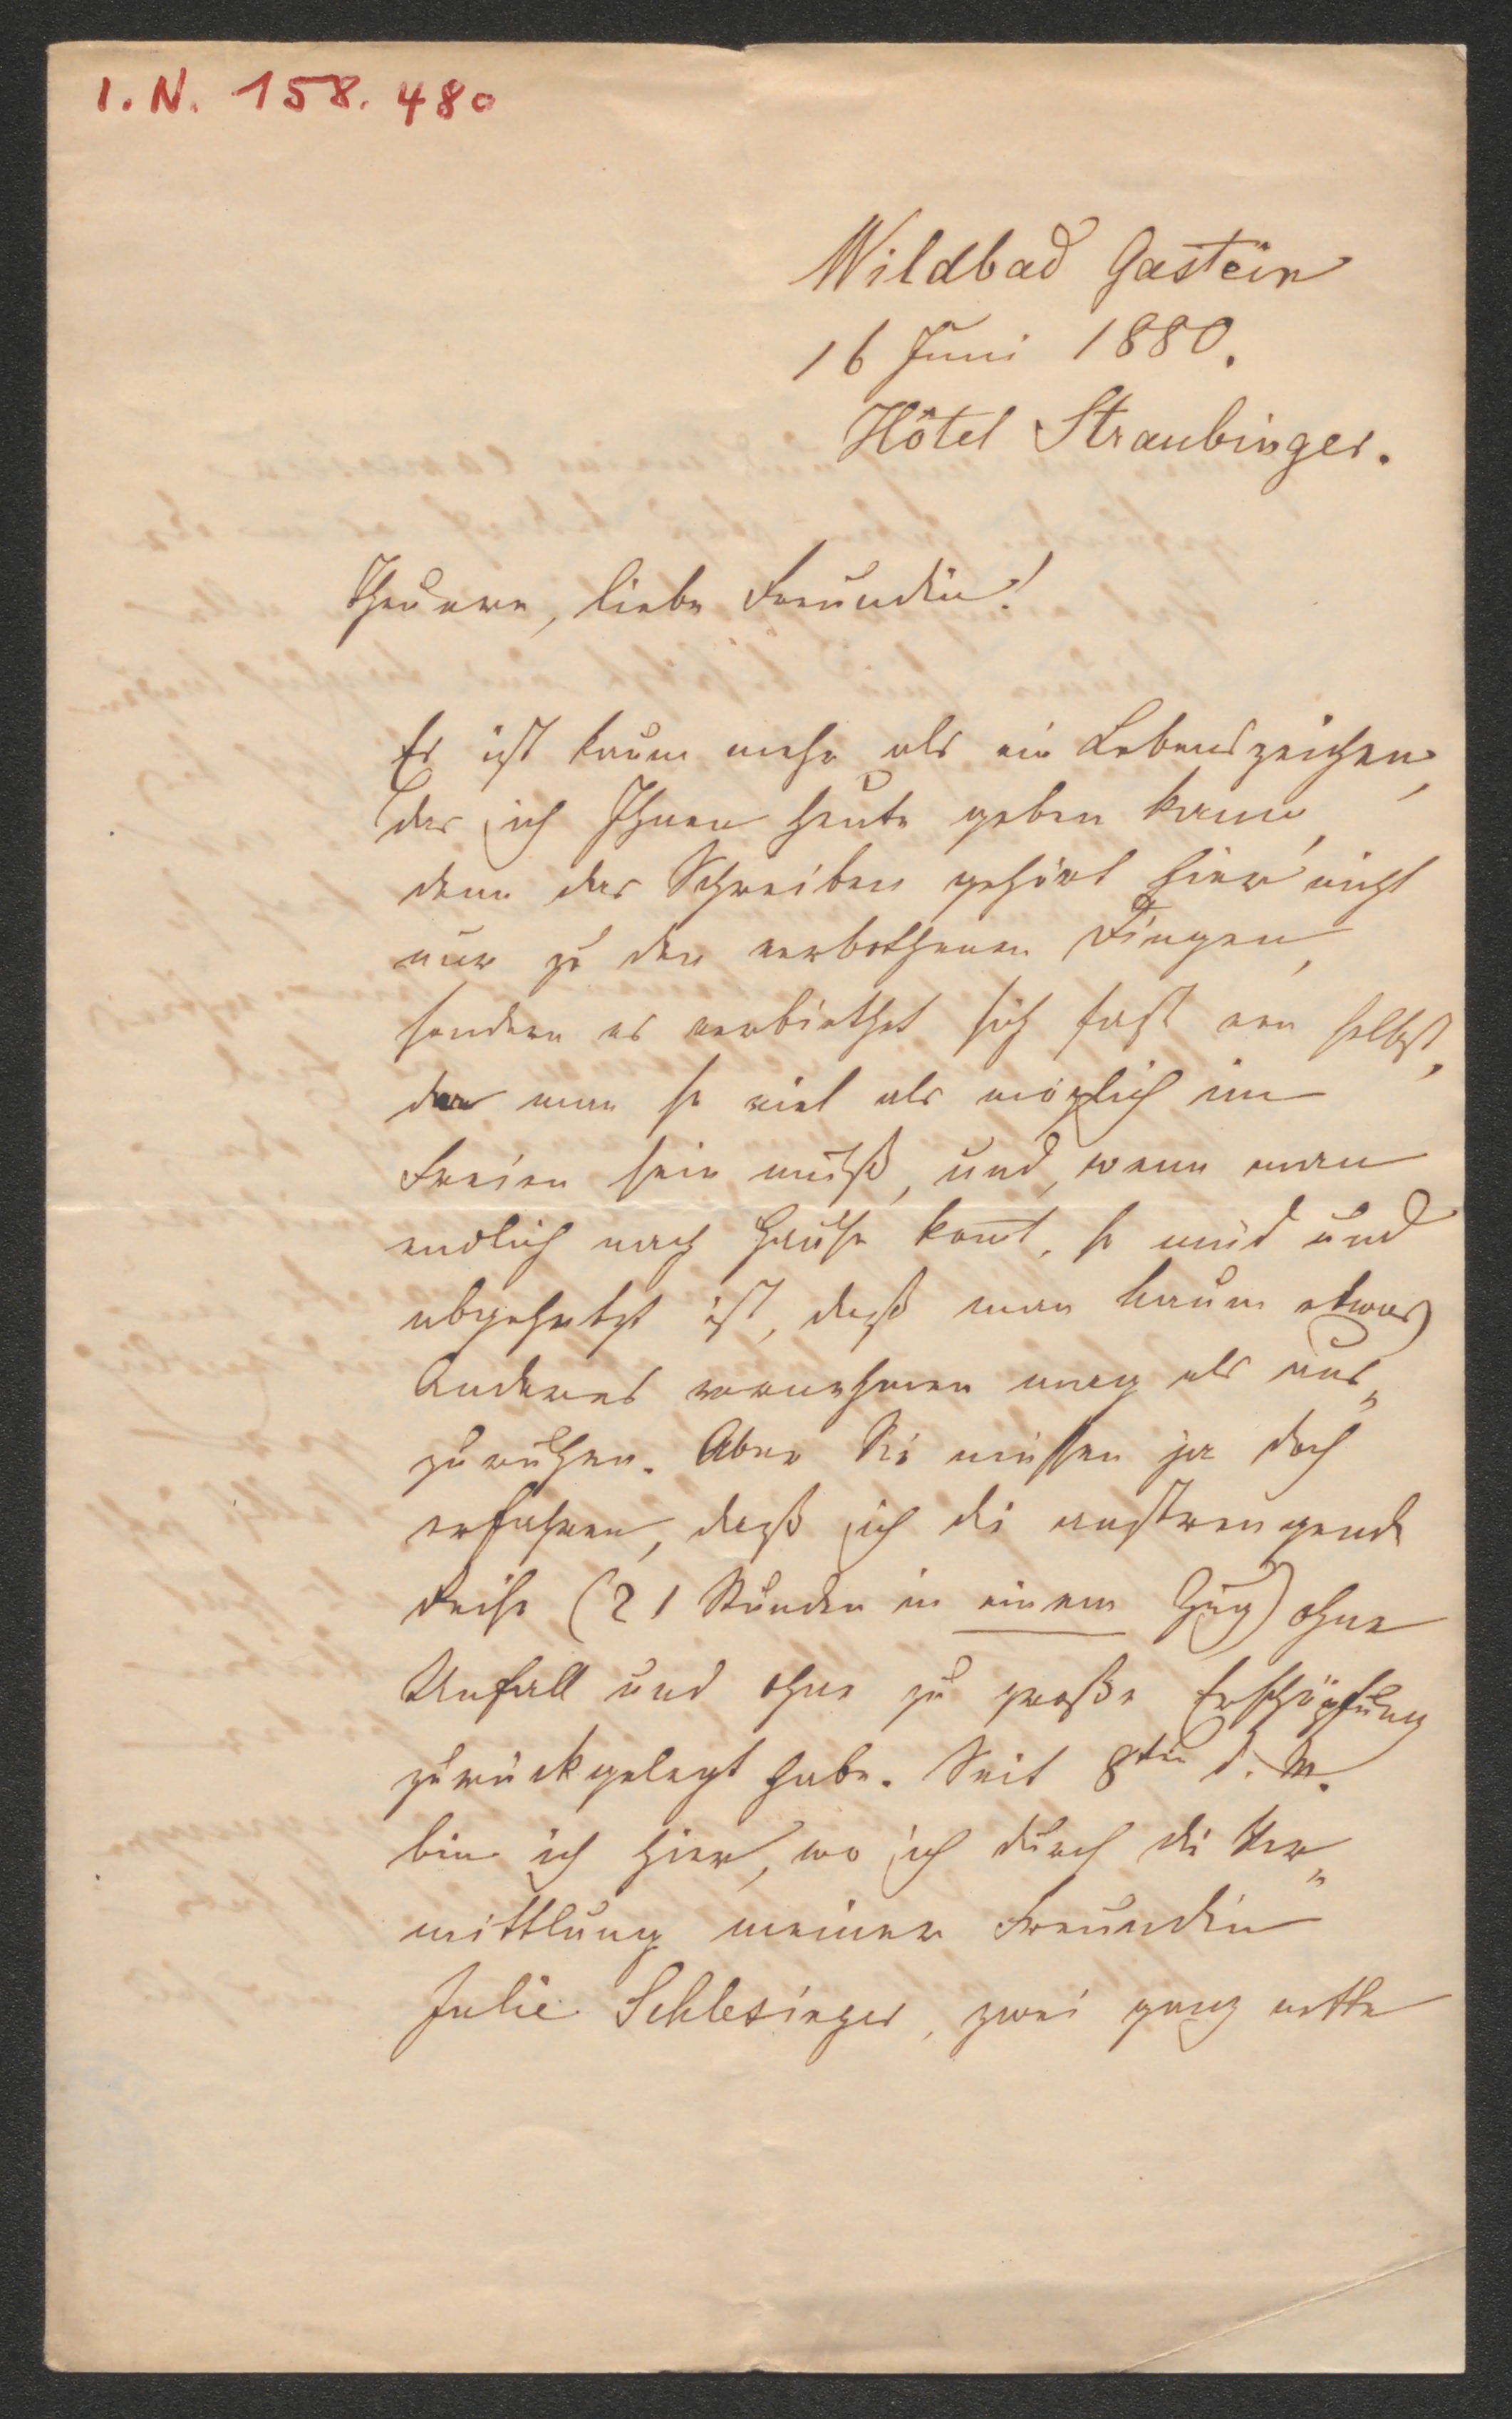 I.N. 158.480
Wildbad Gastein
16 Juni 1880.
Hôtel Straubinger.
Theuere, liebe Freundin!
Es ist kaum mehr als ein Lebenszeichen,
das ich Ihnen heute geben kann,
denn das Schreiben gehört hier nicht
nur zu den verbothenen Dingen,
sondern es verbiethet sich fast von selbst,
da man so viel als möglich im
Freien sein muß, und, wenn man
endlich nach Hause kom̅t, so müd und
abgehetzt ist, daß man kaum etwas
Anderes vornehmen mag als aus„
zuruhen. Aber Sie müssen ja doch
erfahren, daß ich die anstrengende
Reise (21 Stunden in einem Zug) ohne
Unfall und ohne zu große Erschöpfung
zurückgelegt habe. Seit 8ten d. M.
bin ich hier, wo ich durch die Ver„
mittlung meiner Freundin
Julie Schlesinger, zwei ganz nette